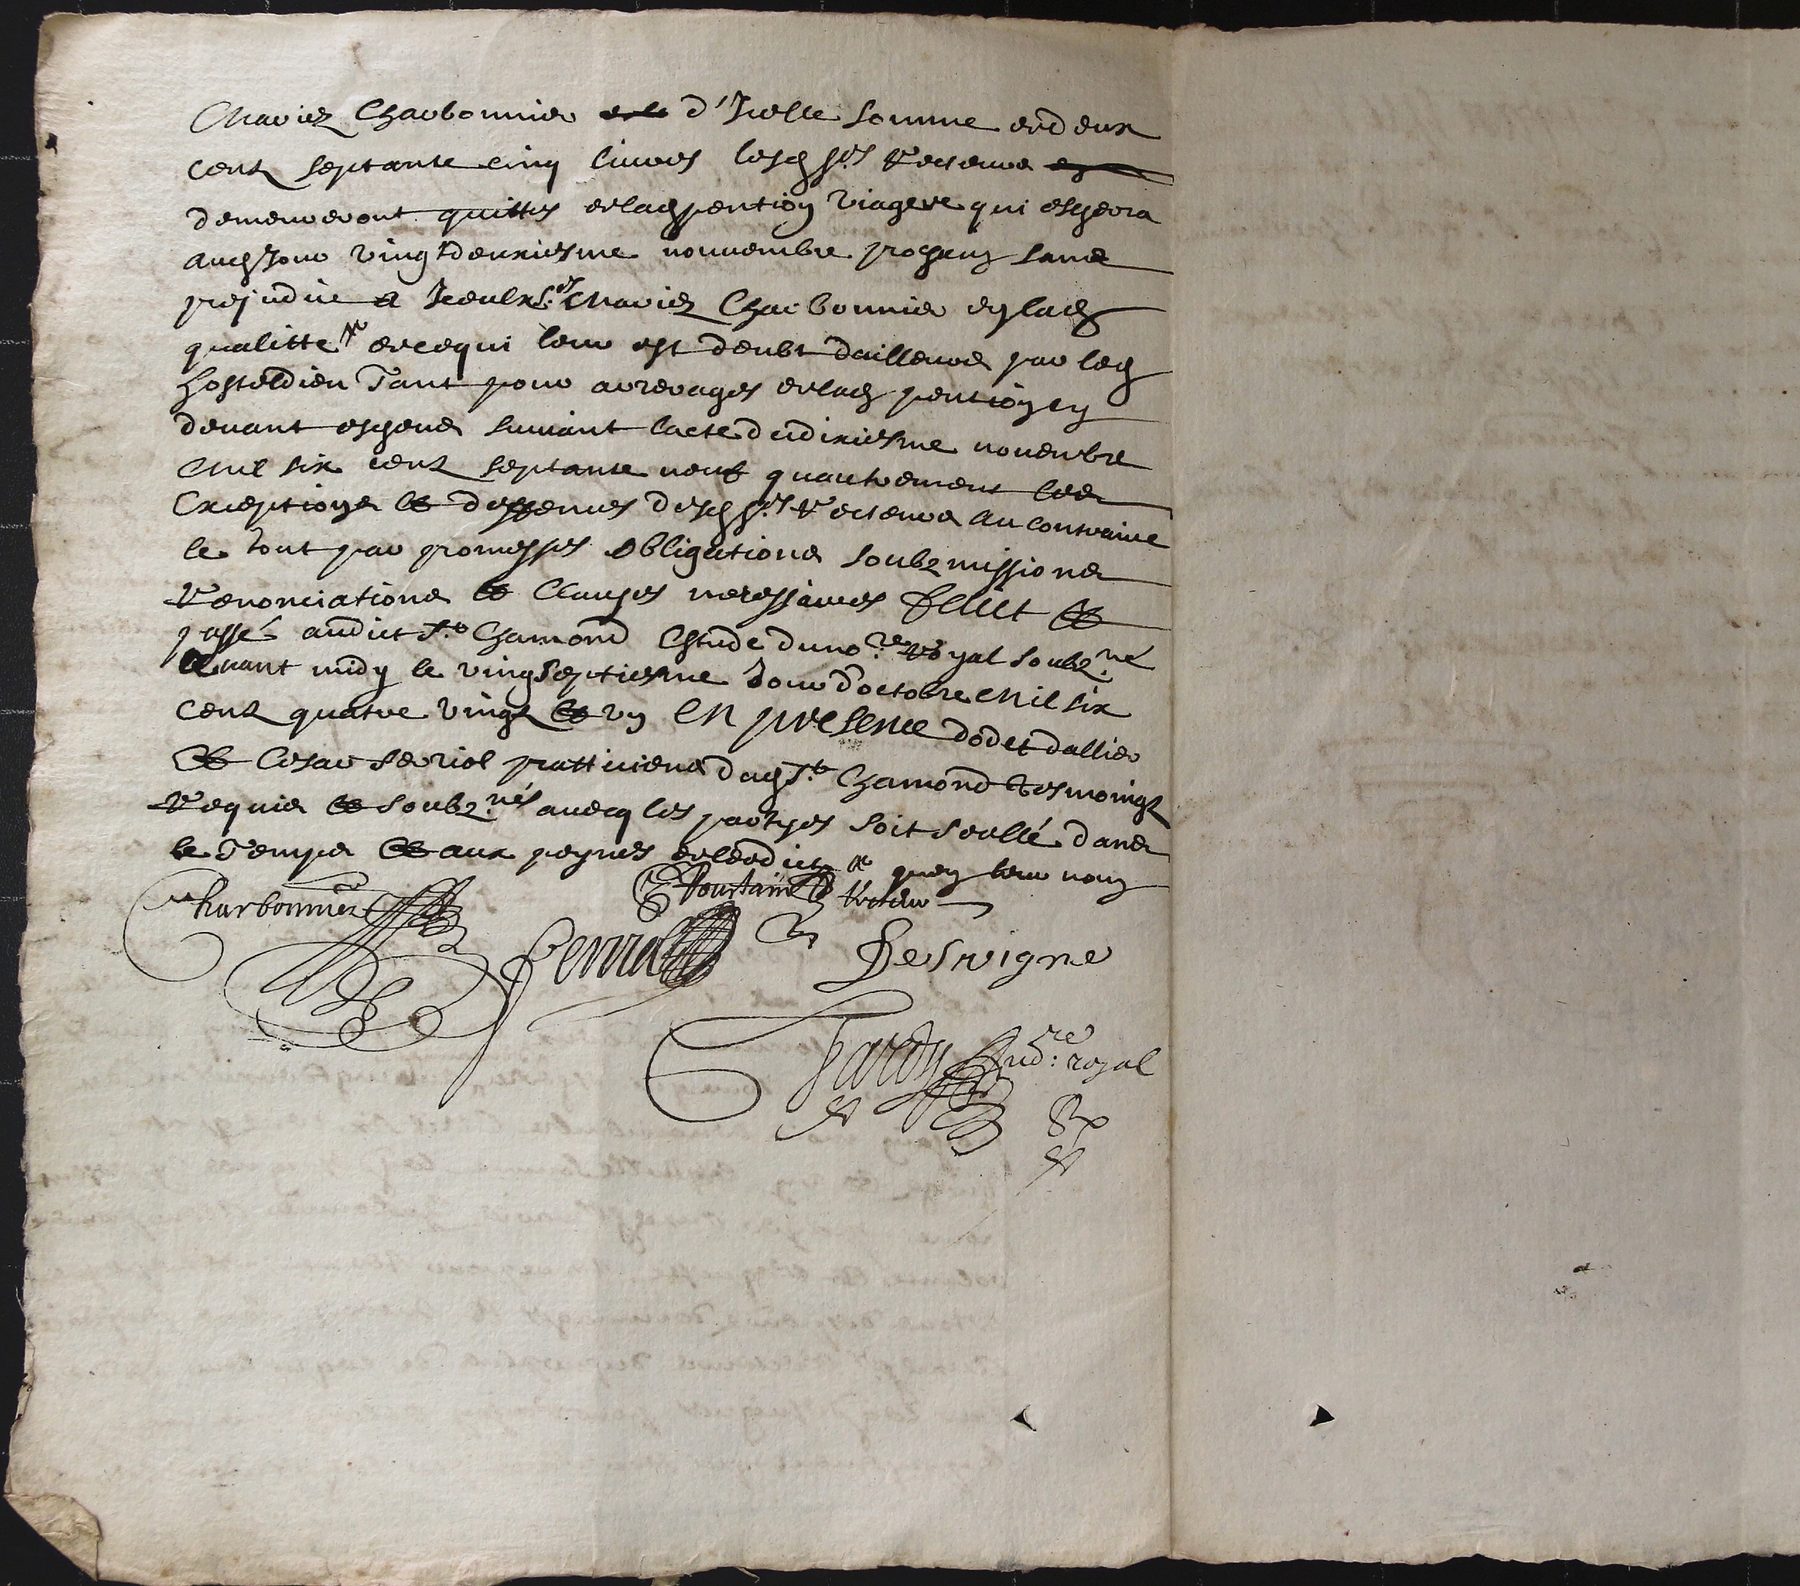 Mariez Charbonnier d'Icelle somme de deux
cent septante cinq livres lesd srs Recteurs
demeureront quittes de lad pention viagere qui eschera
aud Jour vingt deuxiesme nouvembre prochain sans
prejudice a Iceulx srs Mariez Charbonnier en lad
qualitte de ce qui leur est deubt dailleurs par led
hosteldieu Tant pour arrerages de lad pention cy
devant escheus suivant lacte du dixiesme novembre
Mil six cent septante neuf quautrement les
Exceptions & deffences desd srs Recteurs au contraire
le tout par promesses obligations soubzmissions
Renonciations & Clauses necessaires Faict &
passé audict St Chamond Estude du nore Royal soubzné
avant midy le vingtseptiesme Jour d'octobre Mil six
cent quatre vingt & un En presence dodet dallier
& Cesar Seriol pratticiens dud St Chamond Tesmoingz
Requis & soubznés avecq les partyes soit scellé dans
le Temps & aux peynes de ledict
Charbonnier Recteur
Desvigne
Tardy no:re royal